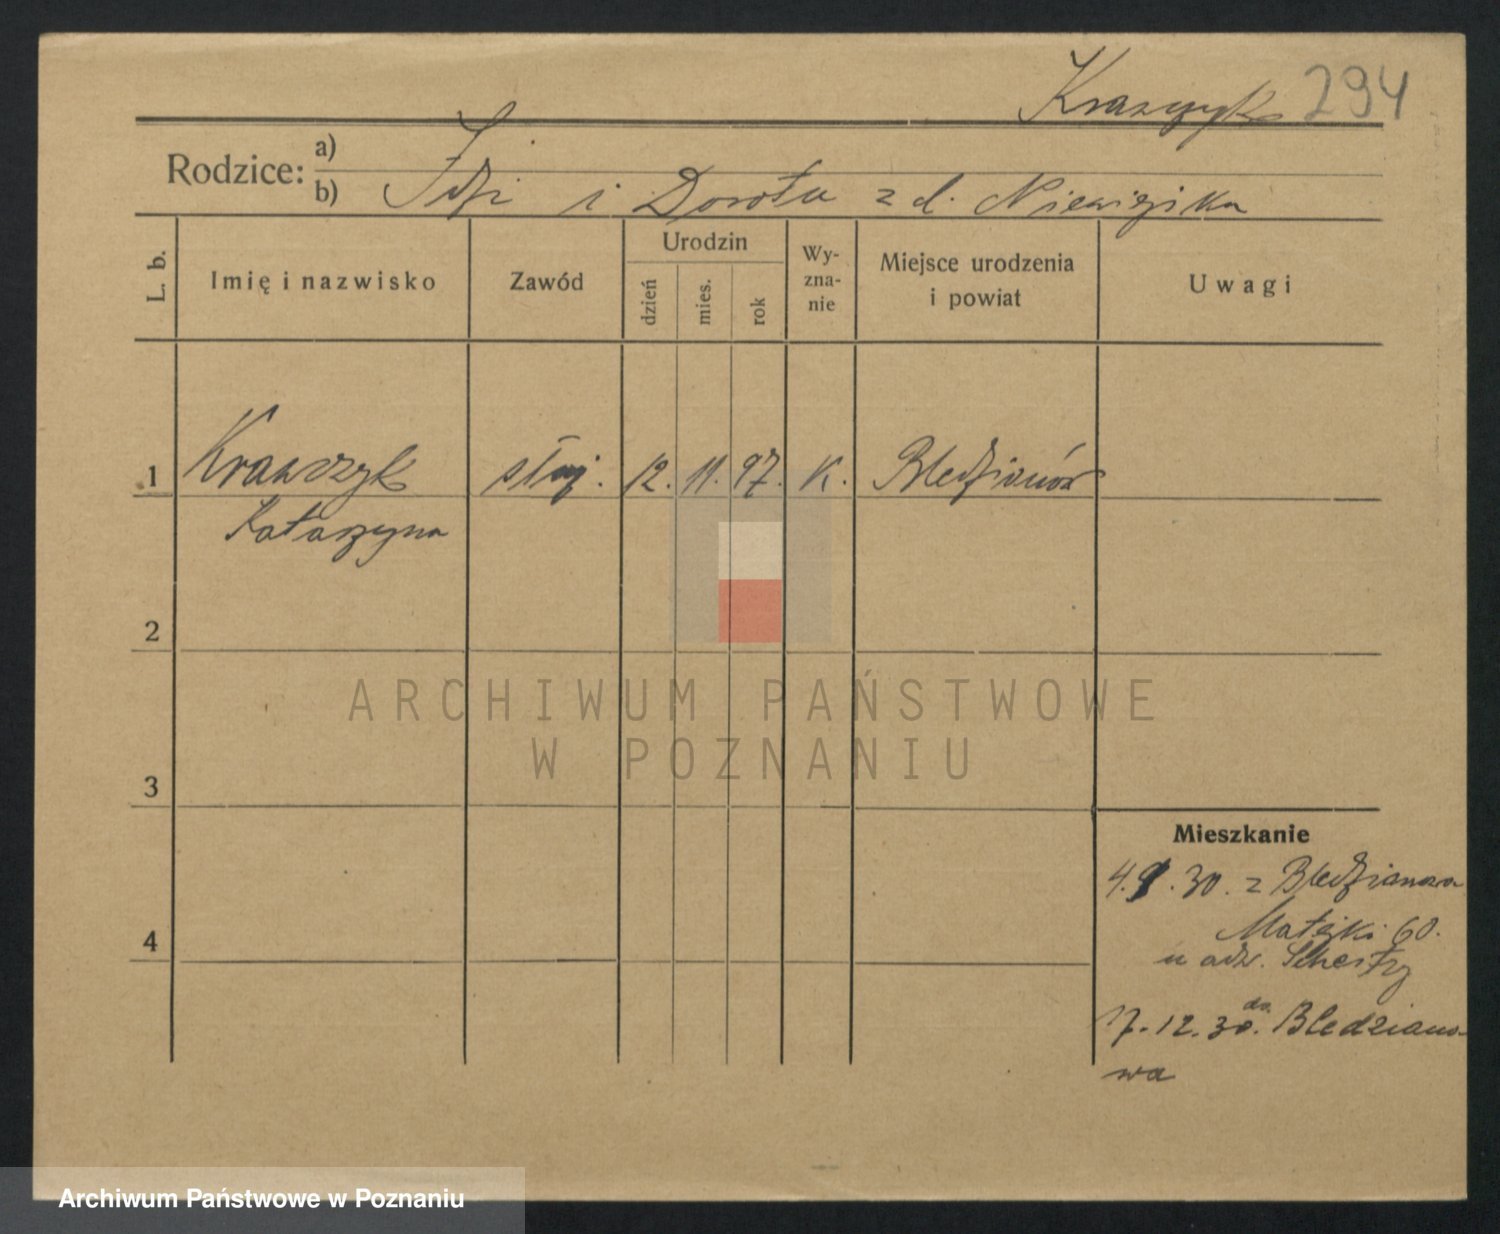 Krawczyk 294
Rodzice: a)
b) Idzi i Dorota z d.
L. b.
Imię i nazwisko
Zawód
Urodzin
dzień
mies.
rok
Wy-
zna-
nie
Miejsce urodzenia
i powiat
Uwagi
1 Krawczyk służ. 12. 11. 97. K. Bledzianów
Katarzyna
2
ARCHIWUM PAŃSTWOWE
W POZNANIU
3
Mieszkanie
4. 9. 30. z Bledzianowa
Matejki 60.
4
u adw.
17. 12. 30. do Bledziano-
wa
Archiwum Państwowe w Poznaniu